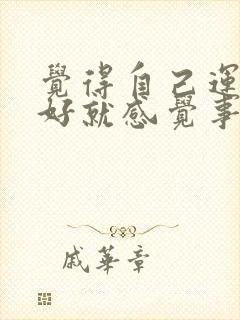 覺得自己運
好就感覺事
戚華章